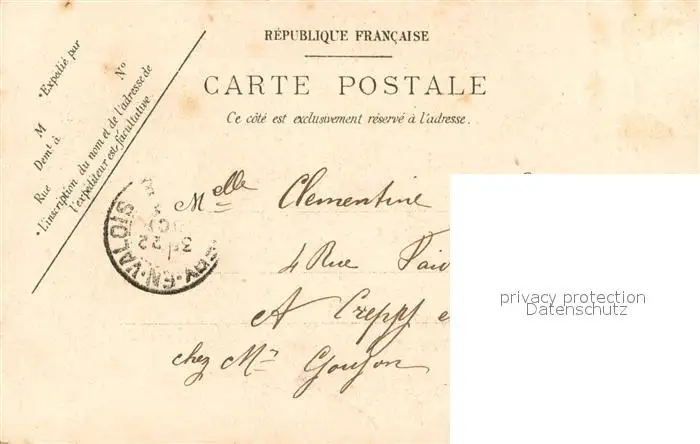 RÉPUBLIQUE FRANÇAISE
CARTE POSTALE
Ce côté est exclusivement réservé à l'adresse.
• Expédié par
M
N°
Demt à
Rue
• L'inscription du nom et de l'adresse de
l'expéditeur est facultative.
EN-VALOIS
22
Melle Clementine
4 Rue
A Crepy
chez Mr Goujon
privacy protection
Datenschutz